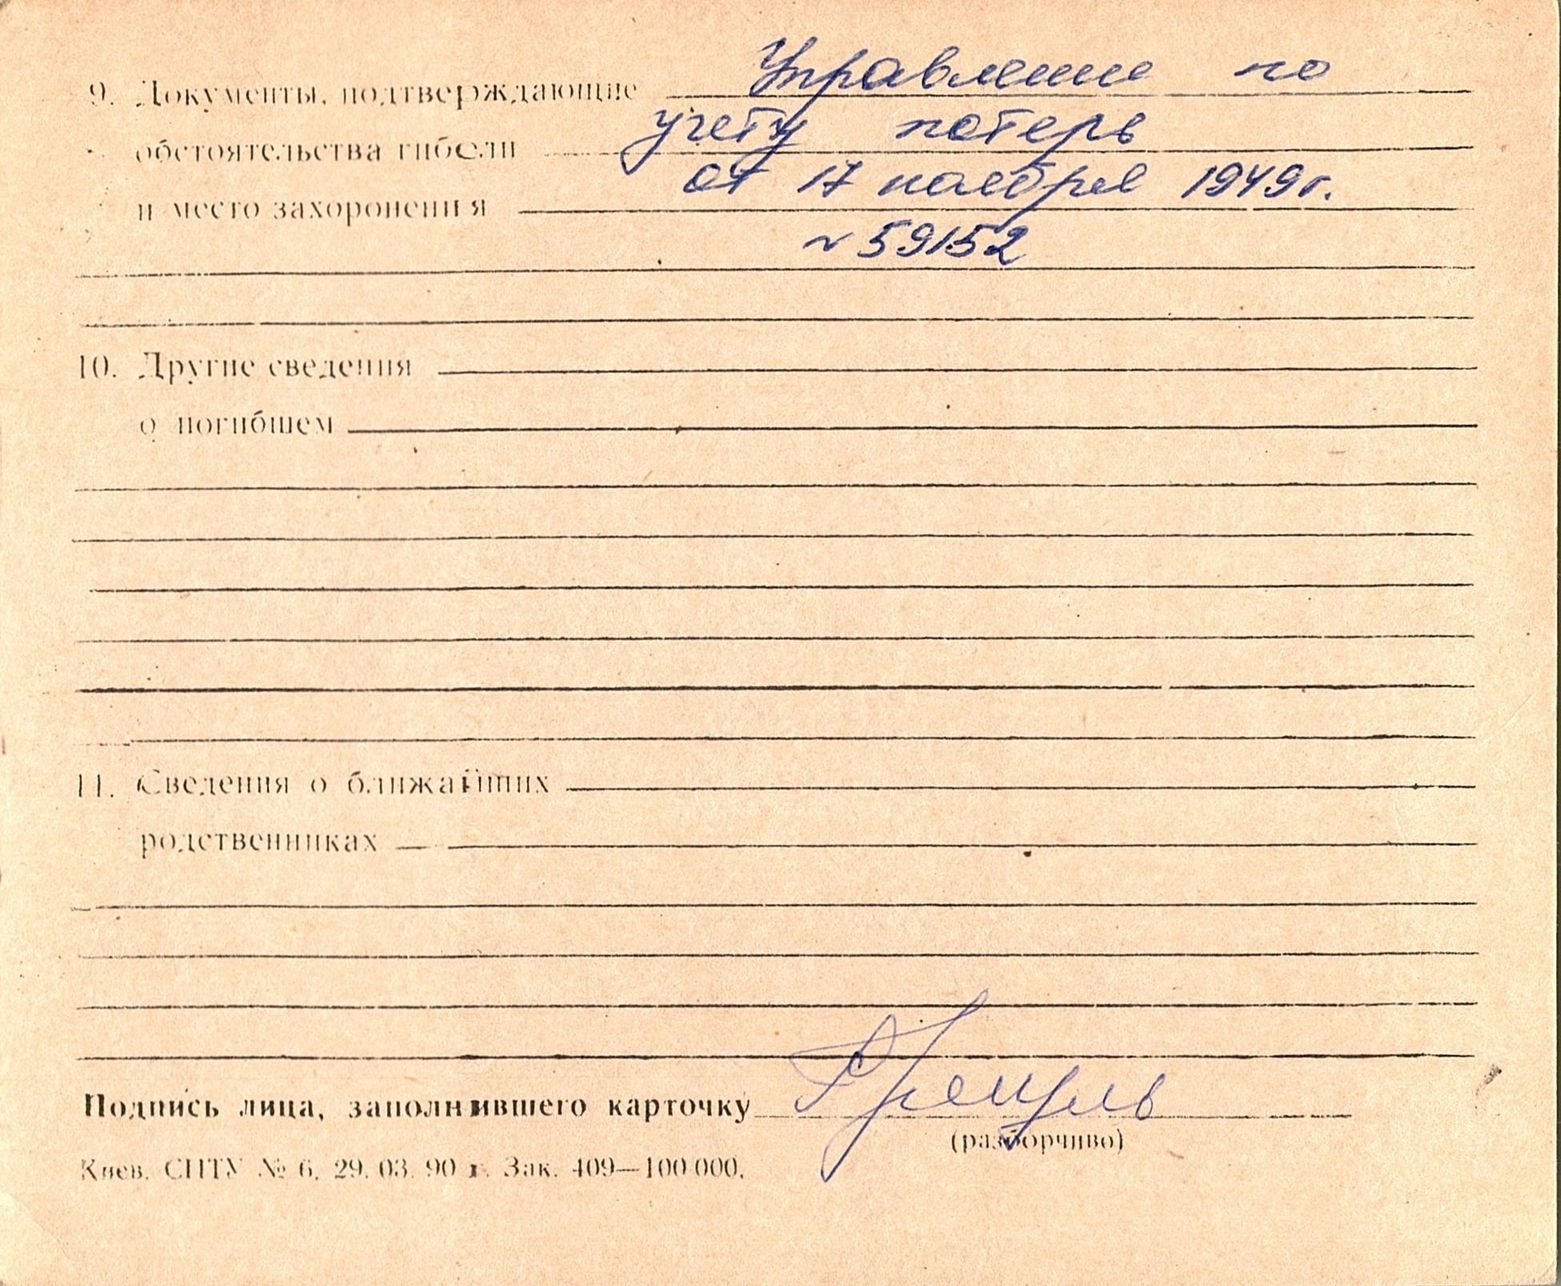 9. Документы, подтверждающие Управление по
обстоятельства гибели учету потерь
и место захоронения от 17 ноября 1949г.
№ 59152
10. Другие сведения
о погибшем
11. Сведения о ближайших
родственниках
Подпись лица, заполнившего карточку
(разборчиво)
Киев. СПТУ № 6. 29. 03. 90 г. Зак. 409—100 000.